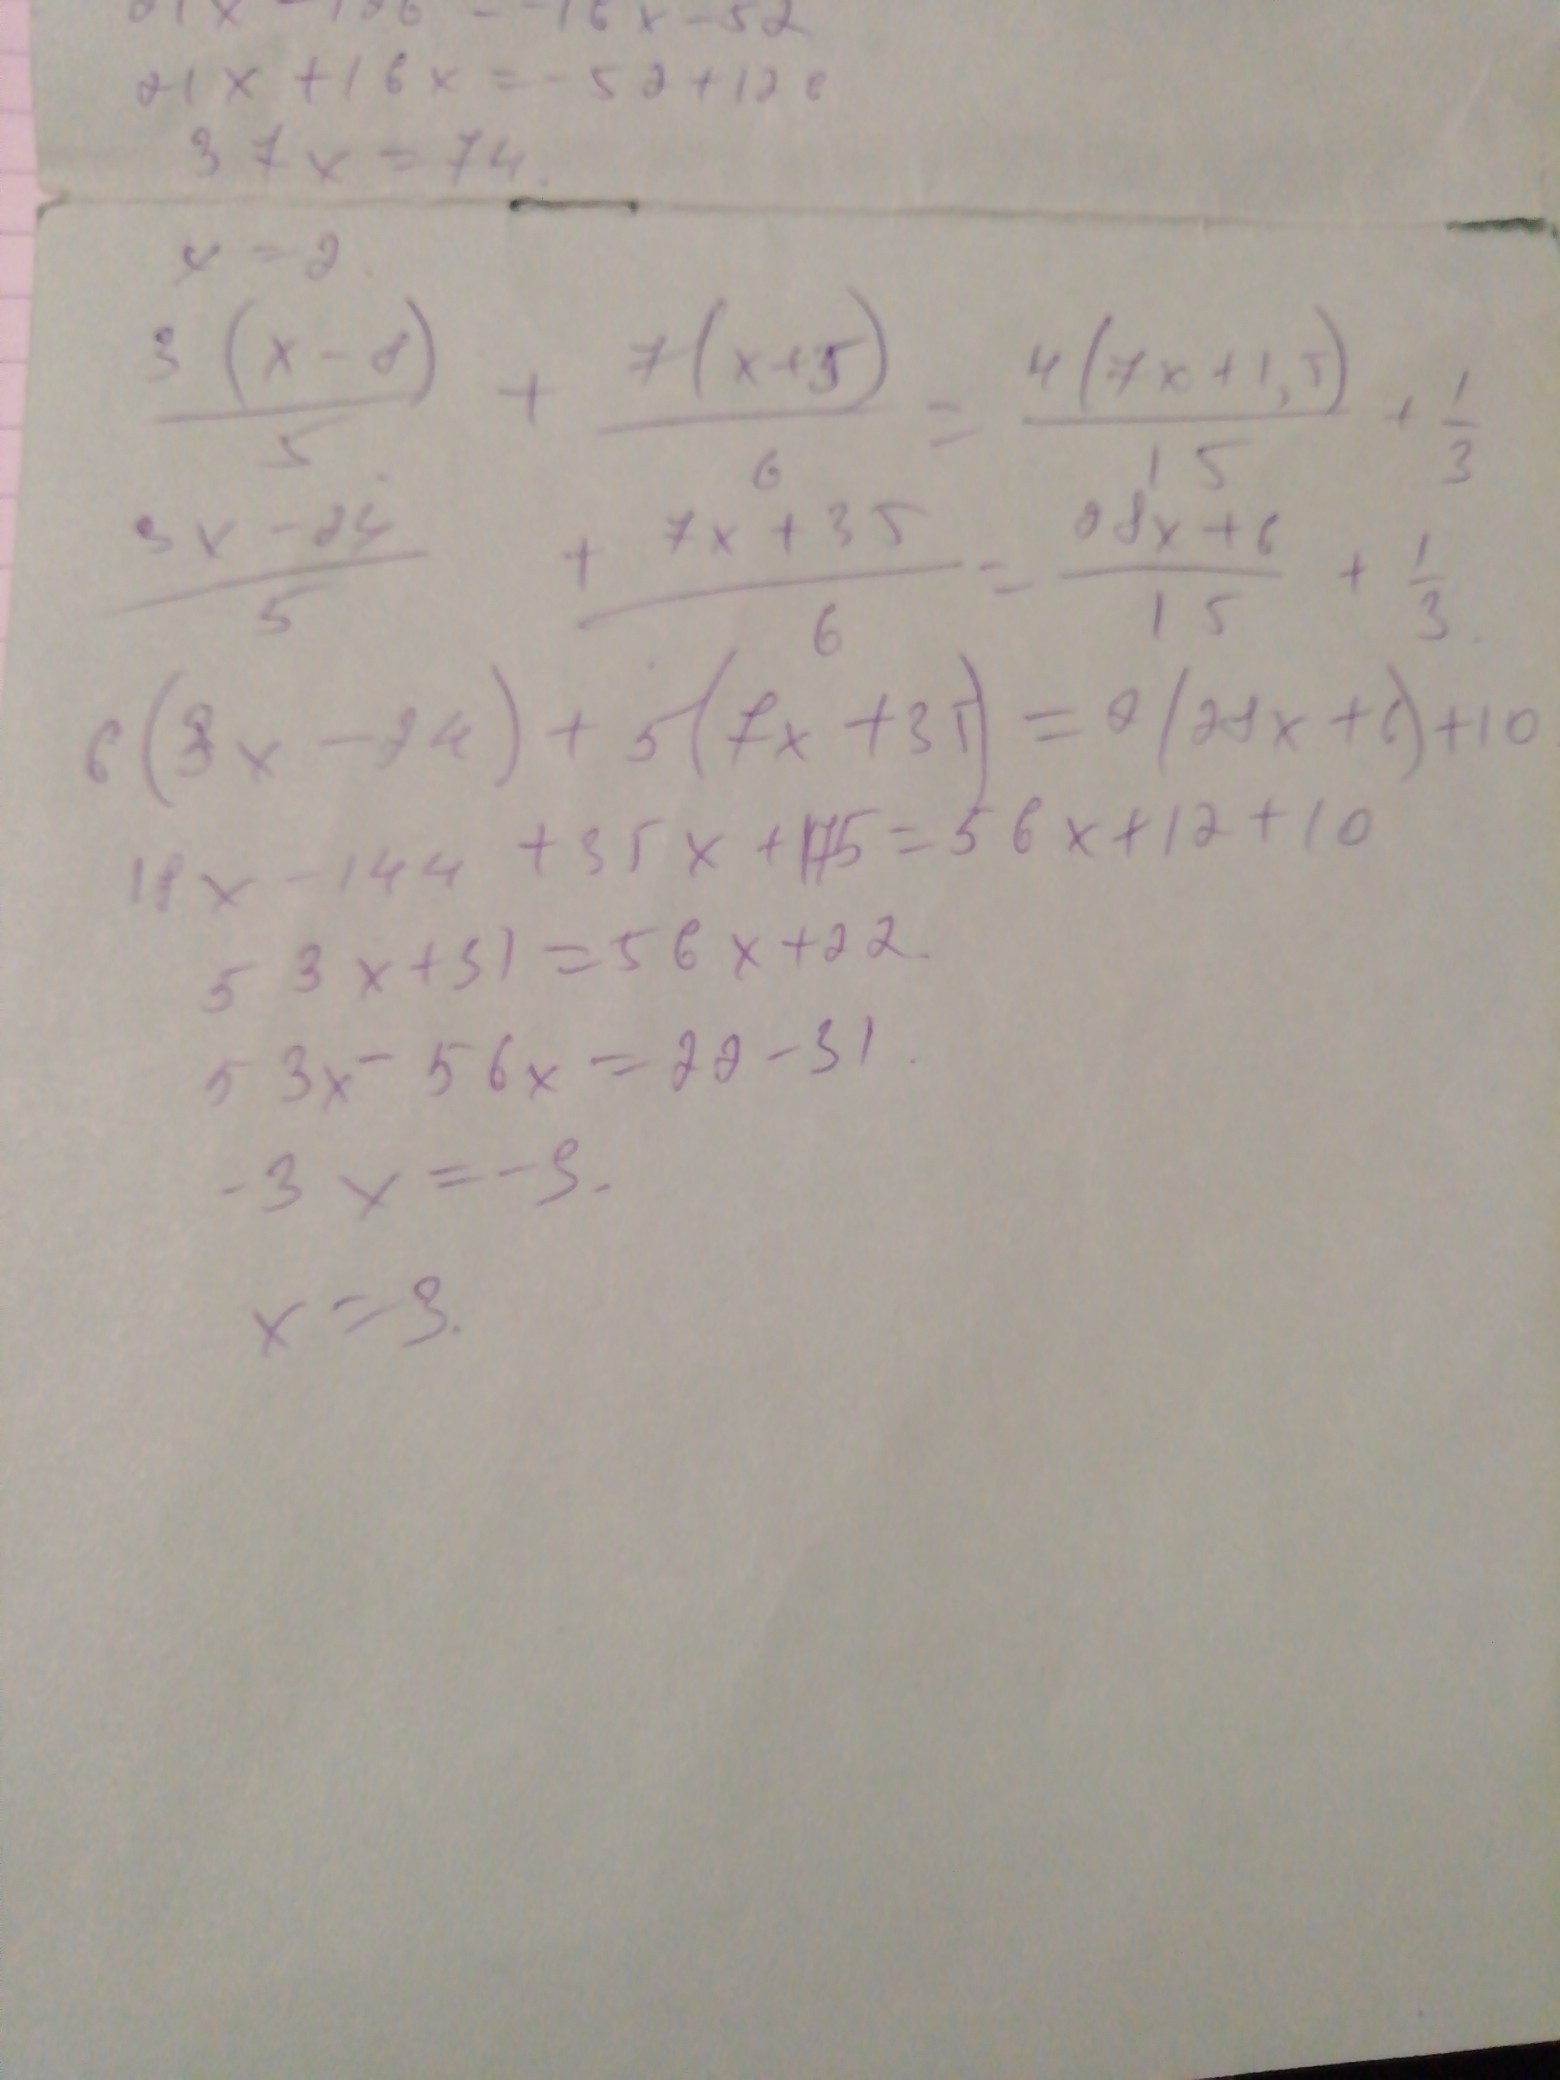 21x - 126 = -16x - 52
21x + 16x = -52 + 126
37x = 74.
x = 2.
3(x-8)/5 + 7(x+5)/6 = 4(7x+1,5)/15 + 1/3
3x-24/5 + 7x+35/6 = 28x+6/15 + 1/3.
6(3x-24) + 5(7x+35) = 2(28x+6) + 10
18x - 144 + 35x + 175 = 56x + 12 + 10
53x + 31 = 56x + 22.
53x - 56x = 22 - 31.
-3x = -9.
x = 3.